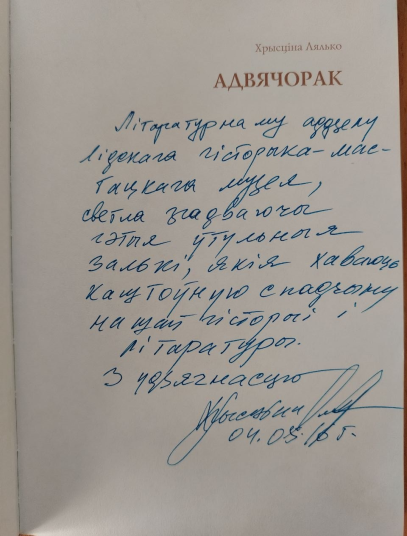 Хрысціна Лялько
АДВЯЧОРАК
Літаратурнаму аддзелу
Лідскага гісторыка-мас-
тацкага музея,
светла згадваючы
гэтыя ўтульныя
залькі, якія хаваюць
каштоўную спадчыну
нашай гісторыі і
літаратуры.
З удзячнасцю
04.05.16 г.